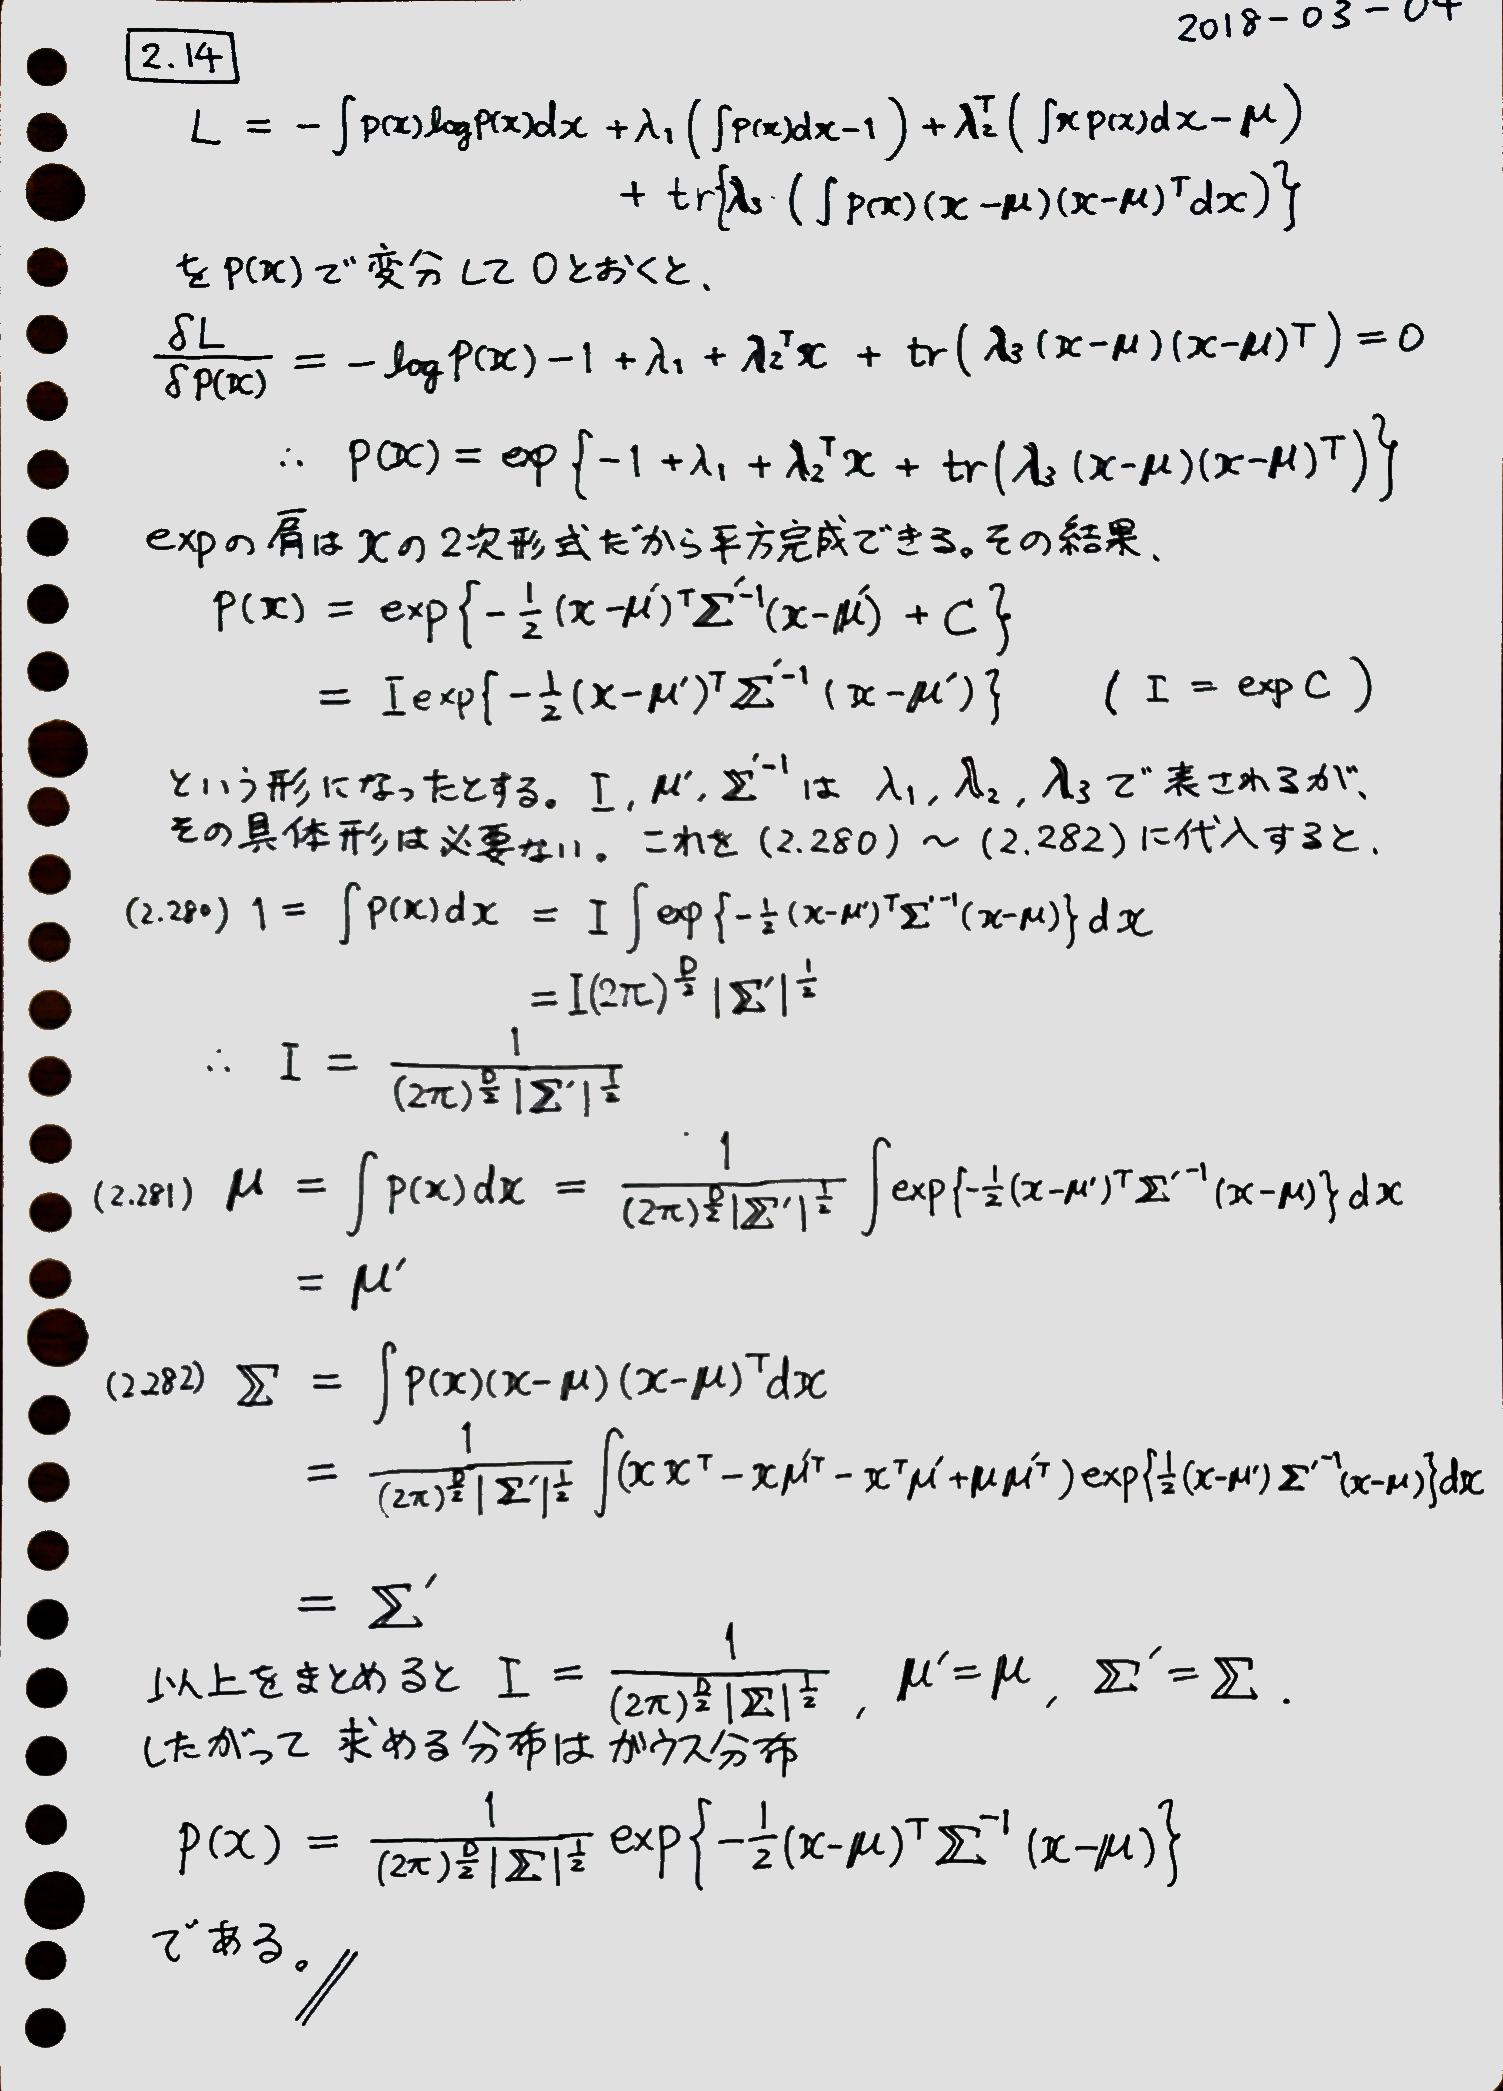 2018-03-04
2.14
L = -∫p(x)logp(x)dx + λ₁(∫p(x)dx-1) + λ₂ᵀ(∫xp(x)dx-μ)
+ tr{λ₃·(∫p(x)(x-μ)(x-μ)ᵀdx)}
をp(x)で変分して0とおくと、
δL/δp(x) = -logp(x)-1+λ₁+λ₂ᵀx + tr(λ₃(x-μ)(x-μ)ᵀ)=0
∴ p(x) = exp{-1+λ₁+λ₂ᵀx + tr(λ₃(x-μ)(x-μ)ᵀ)}
expの肩はxの2次形式だから平方完成できる。その結果、
p(x) = exp{-1/2(x-μ')ᵀΣ'⁻¹(x-μ') + C}
= I exp{-1/2(x-μ')ᵀΣ'⁻¹(x-μ')} (I = exp C)
という形になったとする。I, μ', Σ'⁻¹は λ₁, λ₂, λ₃で表されるが、
その具体形は必要ない。これを(2.280)~(2.282)に代入すると、
(2.280) 1 = ∫p(x)dx = I∫exp{-1/2(x-μ')ᵀΣ'⁻¹(x-μ)}dx
= I(2π)^(D/2)|Σ'|^(1/2)
∴ I = 1/((2π)^(D/2)|Σ'|^(1/2))
(2.281) μ = ∫p(x)dx = 1/((2π)^(D/2)|Σ'|^(1/2)) ∫exp{-1/2(x-μ')ᵀΣ'⁻¹(x-μ)}dx
= μ'
(2.282) Σ = ∫p(x)(x-μ)(x-μ)ᵀdx
= 1/((2π)^(D/2)|Σ'|^(1/2)) ∫(xxᵀ-xμ'ᵀ-xᵀμ'+μμ'ᵀ)exp{1/2(x-μ')Σ'⁻¹(x-μ)}dx
= Σ'
以上をまとめると I = 1/((2π)^(D/2)|Σ|^(1/2)), μ'=μ, Σ'=Σ.
したがって求める分布はガウス分布
p(x) = 1/((2π)^(D/2)|Σ|^(1/2)) exp{-1/2(x-μ)ᵀΣ⁻¹(x-μ)}
である。//